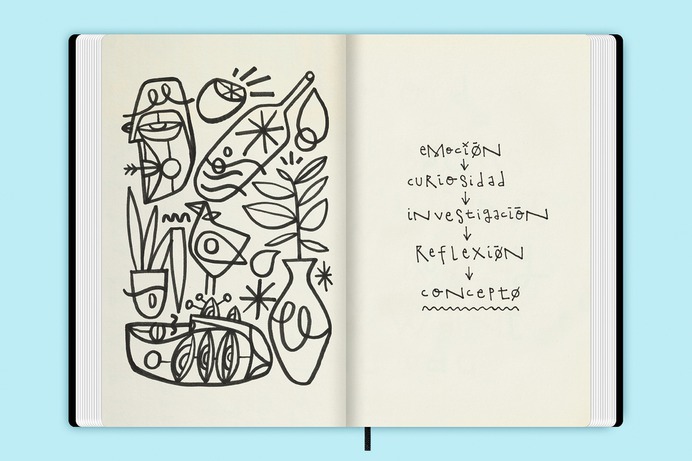 eMociØN
↓
cuRiosidad
↓
iNvestigaciōN
↓
ReflexiōN
↓
coNceptØ